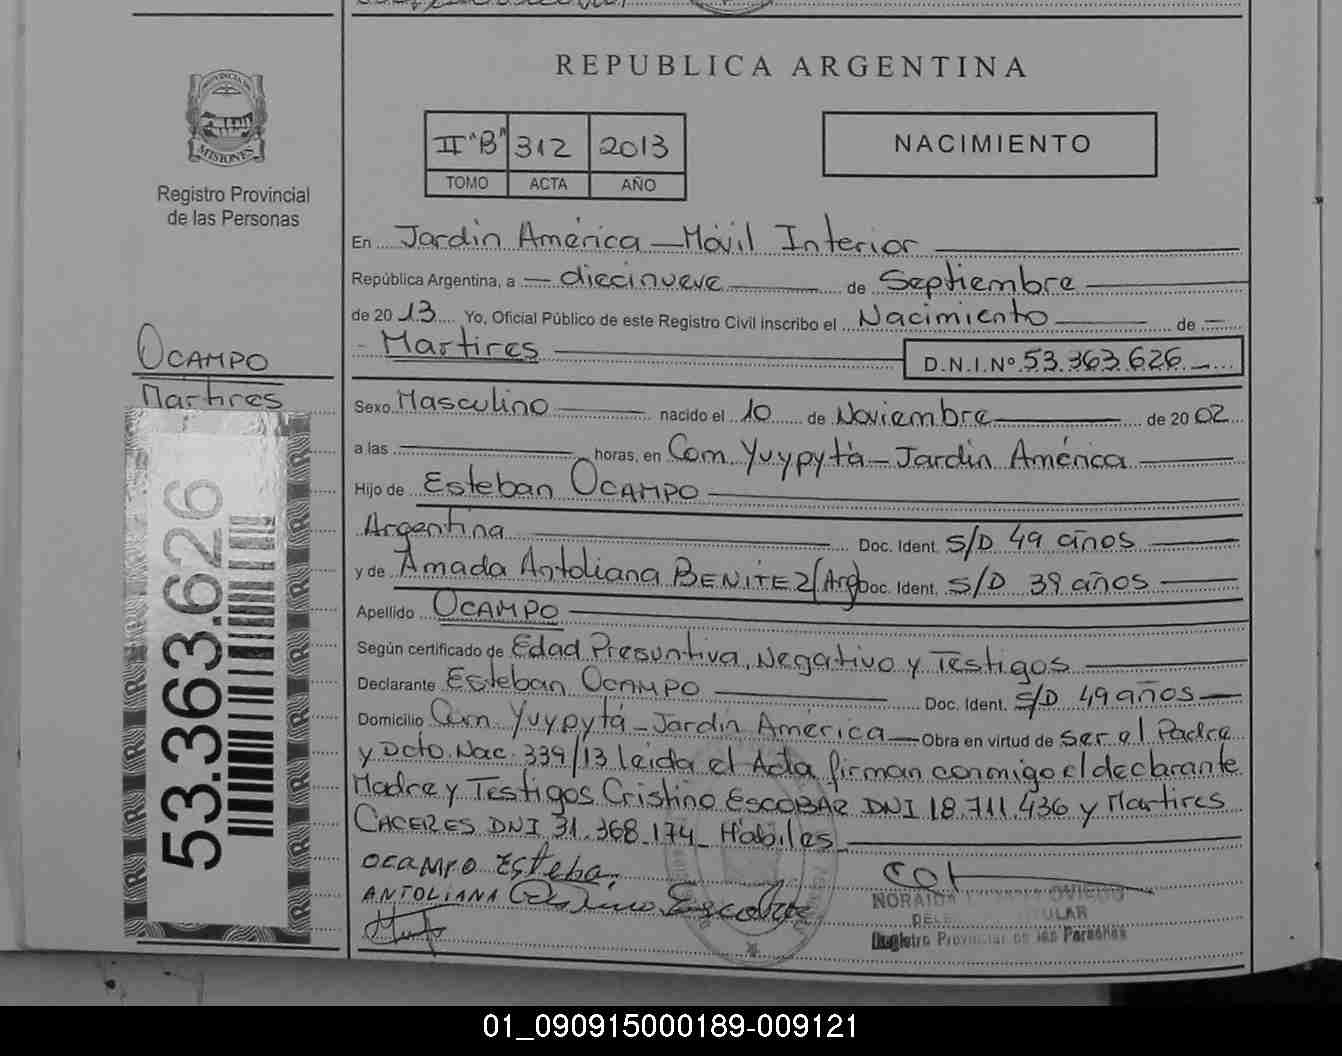 REPUBLICA ARGENTINA
PROVINCIA DE
MISIONES
Registro Provincial
de las Personas
II "B" 312 2013
TOMO ACTA AÑO
NACIMIENTO
OCAMPO
Martires
53.363.626
En Jardin América - Móvil Interior
República Argentina, a diecinueve de Septiembre
de 2013 Yo, Oficial Público de este Registro Civil inscribo el Nacimiento de
Martires D.N.I.Nº 53.363.626
Sexo Masculino nacido el 10 de Noviembre de 2002
a las horas, en Com. Yuypytá - Jardin América
Hijo de Esteban OCAMPO
Argentina Doc. Ident. S/D 49 años
y de Amada Antoliana BENITEZ (Arg) Doc. Ident. S/D 39 años
Apellido OCAMPO
Según certificado de Edad Presuntiva, Negativo y Testigos
Declarante Esteban OCAMPO Doc. Ident. S/D 49 años
Domicilio Com Yuypytá - Jardin América Obra en virtud de ser el Padre
y Dcto. Nac. 339/13 leida el Acta firman conmigo el declarante
Madre y Testigos Cristino ESCOBAR DNI 18.711.436 y Martires
CACERES DNI 31.368.174 Hábiles
OCAMPO Esteba
ANTOLIANA Escobar
NORAIDA OVIEDO
TITULAR
Registro Provincial de las Personas
01_090915000189-009121